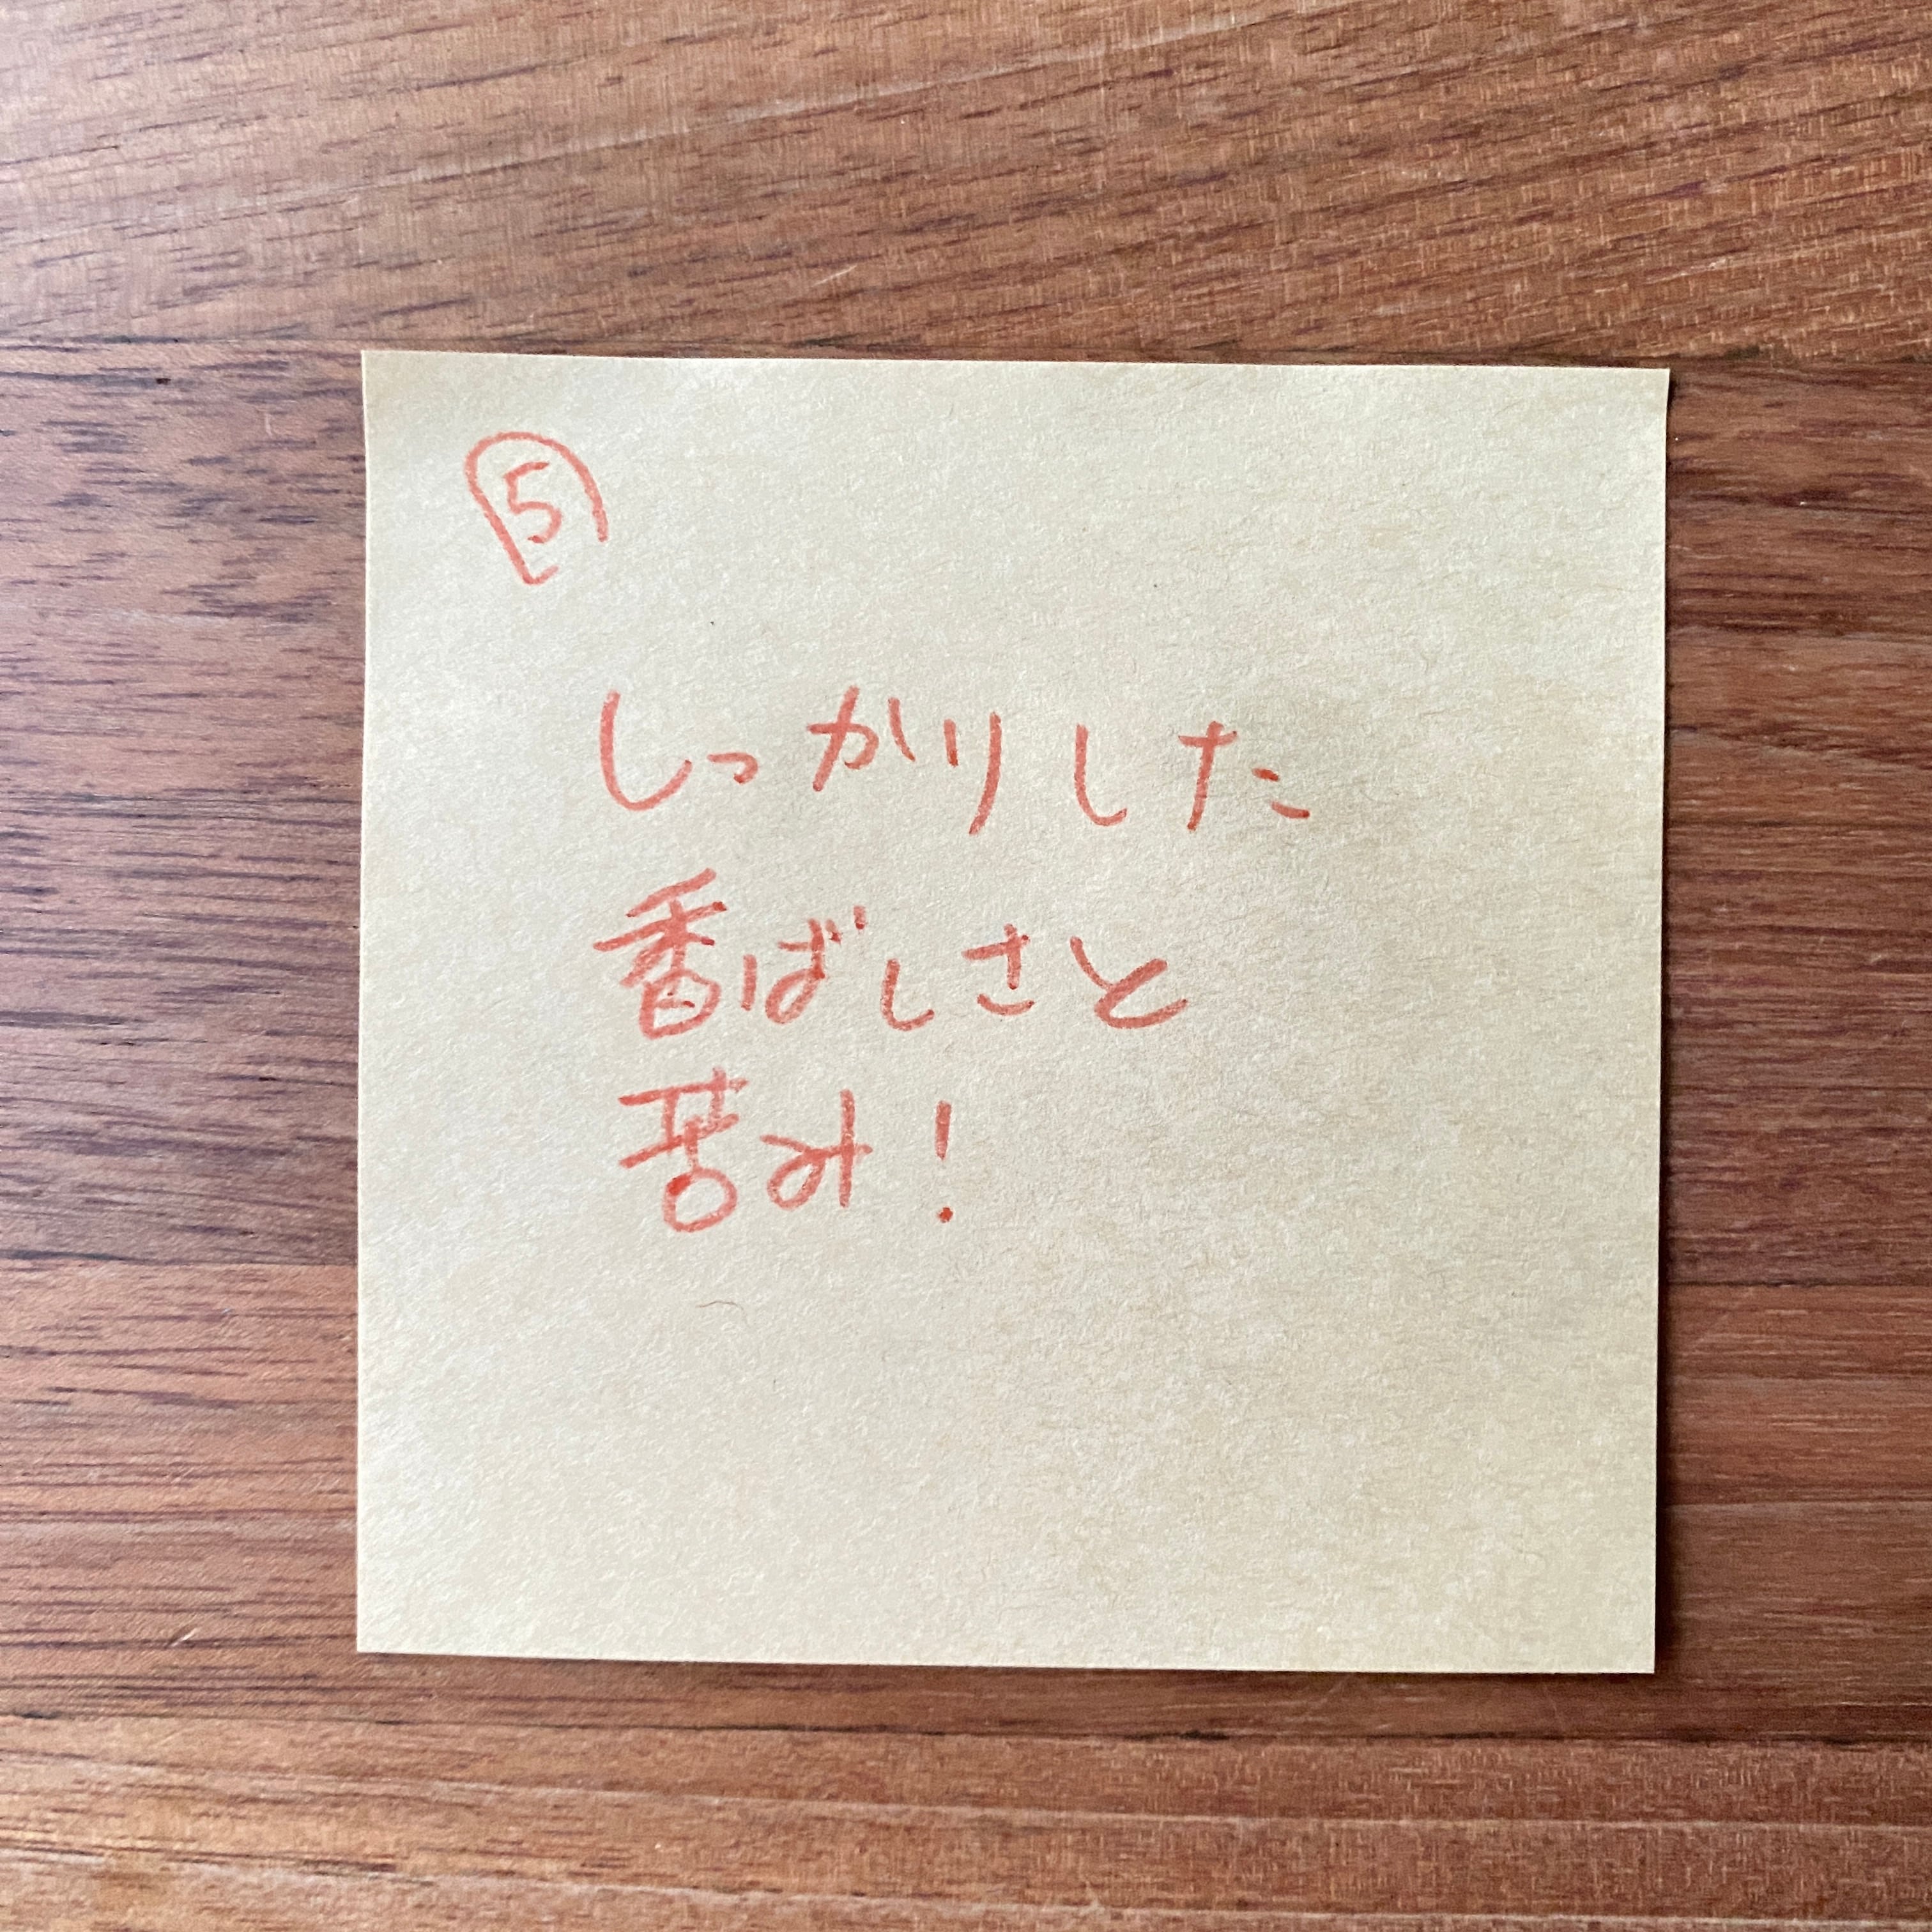 ⑤
しっかりした
香ばしさと
苦み!